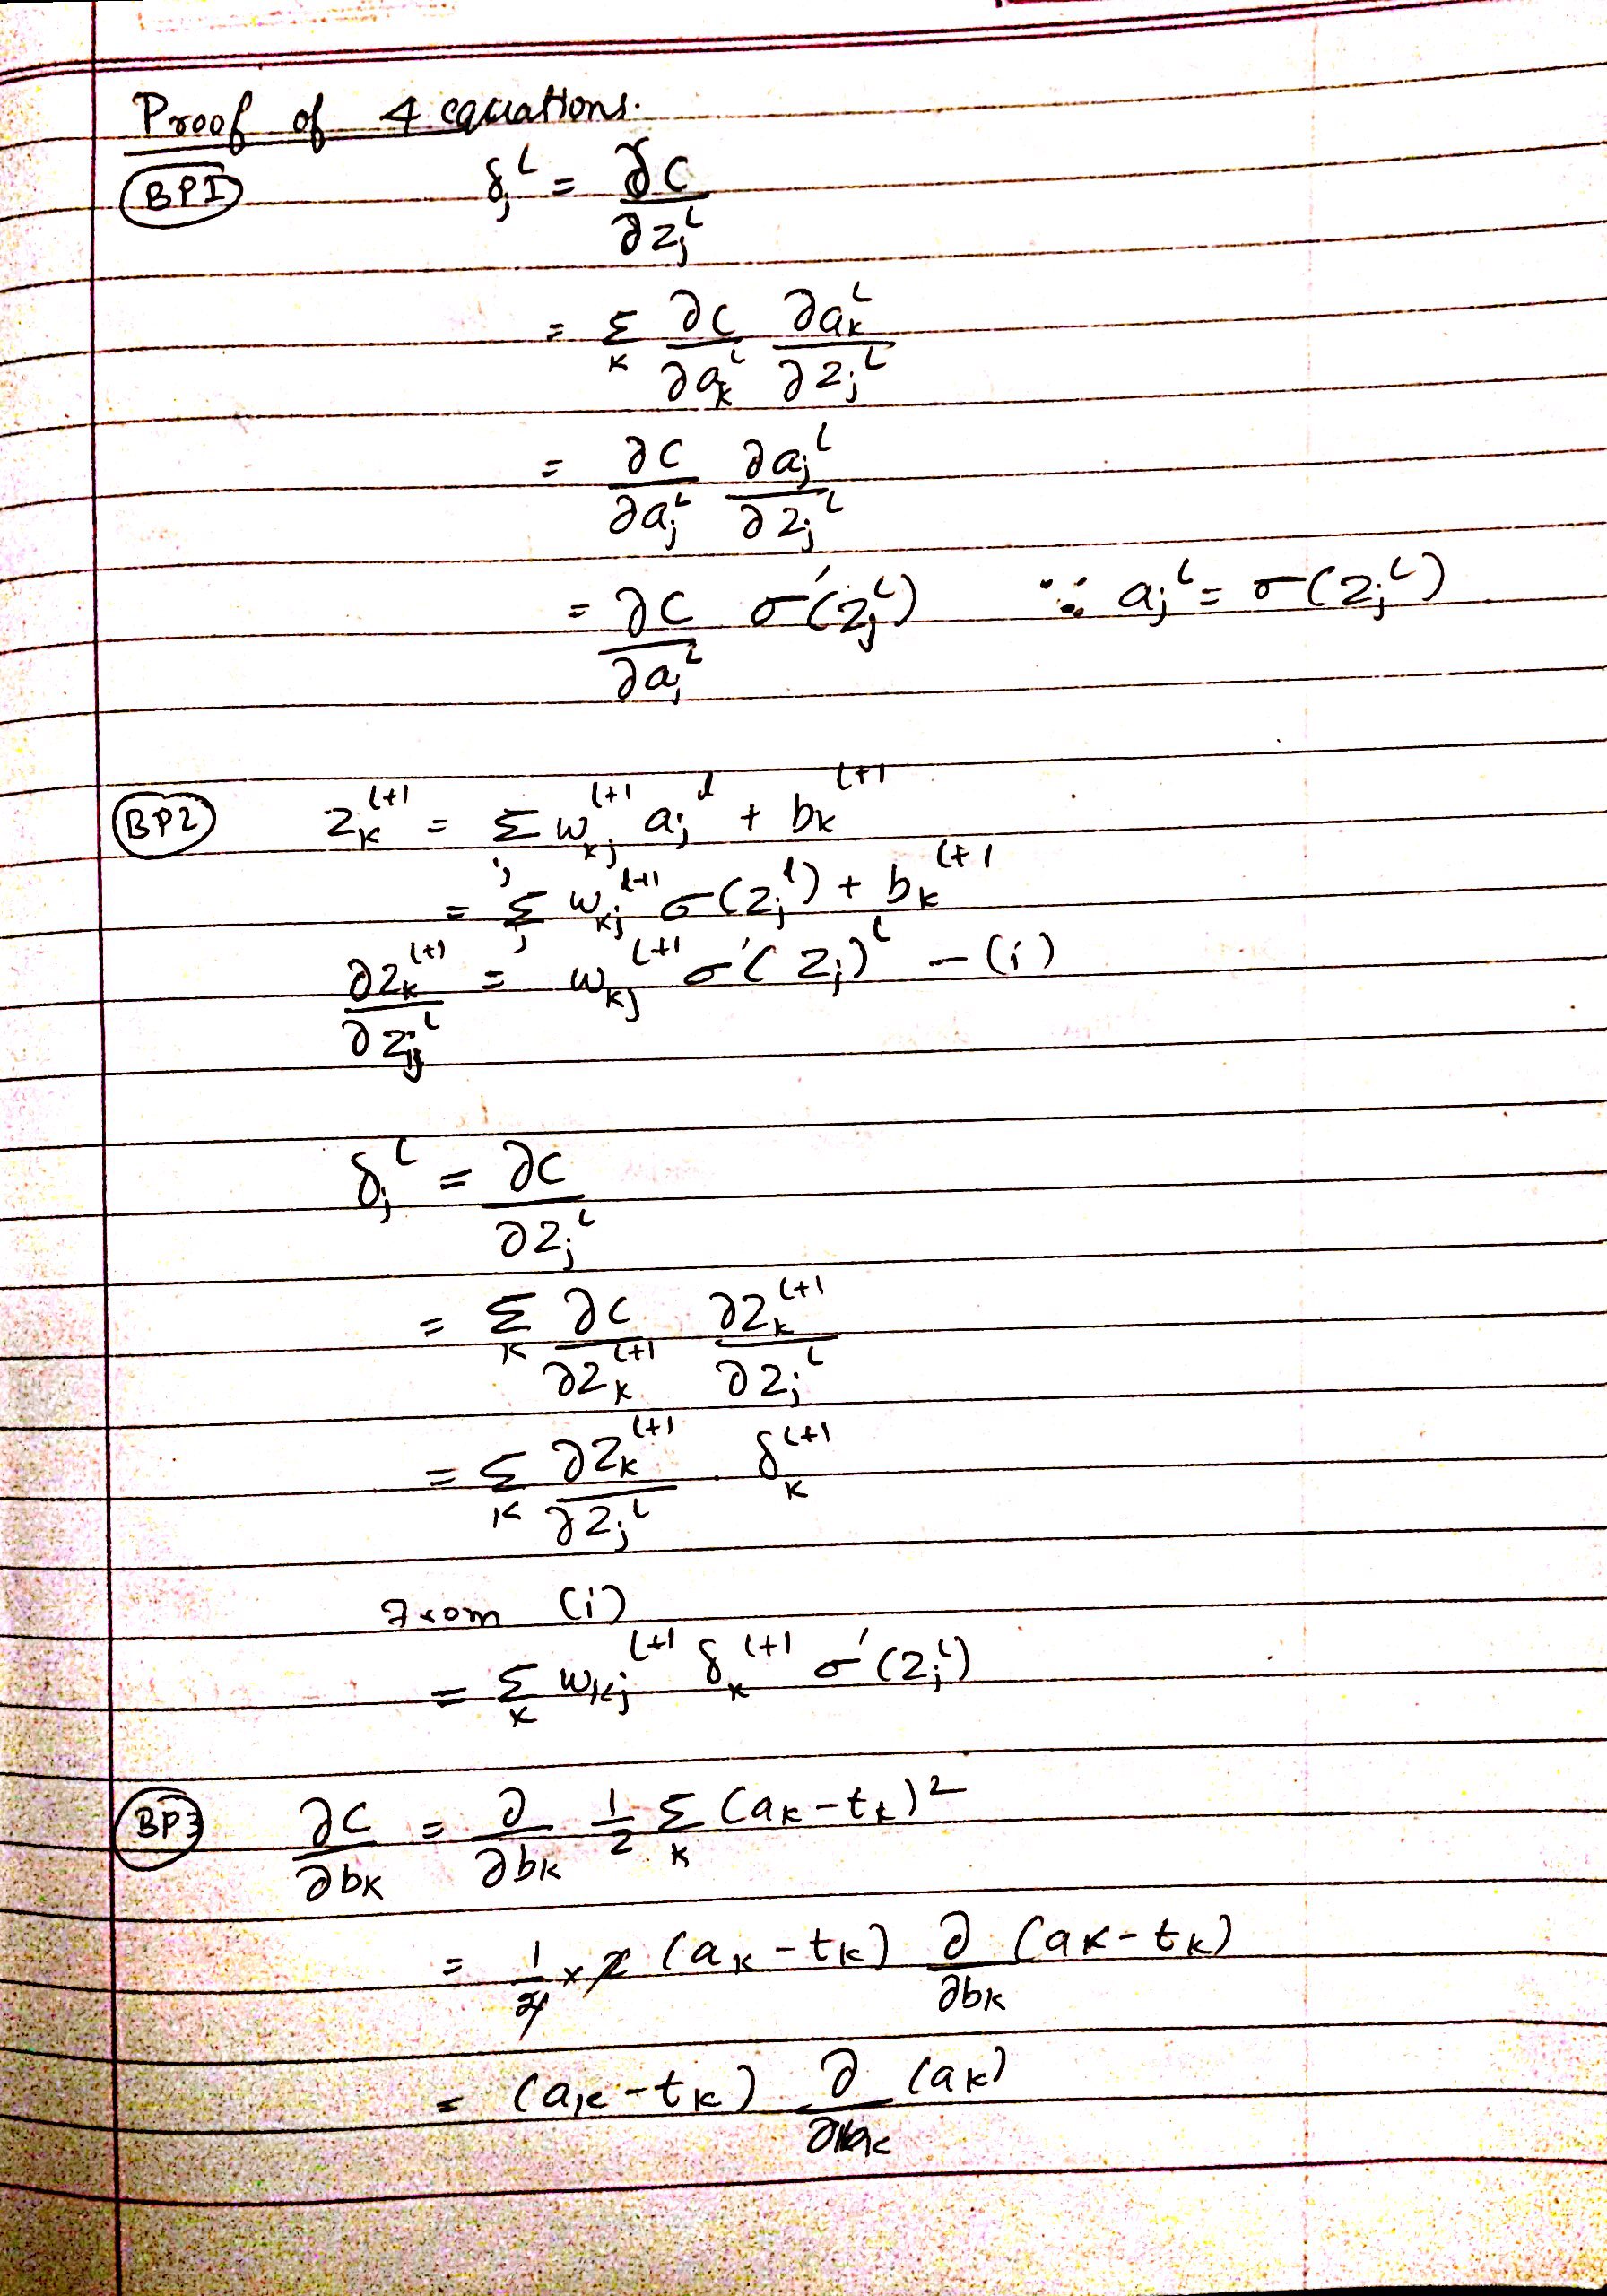 Proof of 4 equations.
BP1 δ_j^L = ∂C / ∂z_j^L
= Σ_k ∂C/∂a_k^L ∂a_k^L/∂z_j^L
= ∂C/∂a_j^L ∂a_j^L/∂z_j^L
= ∂C/∂a_j^L σ'(z_j^L) ∵ a_j^L = σ(z_j^L)
BP2 z_k^{l+1} = Σ_j w_kj^{l+1} a_j^l + b_k^{l+1}
= Σ_j w_kj^{l+1} σ(z_j^l) + b_k^{l+1}
∂z_k^{l+1}/∂z_j^l = w_kj^{l+1} σ'(z_j)^l – (i)
δ_j^l = ∂C/∂z_j^l
= Σ_k ∂C/∂z_k^{l+1} ∂z_k^{l+1}/∂z_j^l
= Σ_k ∂z_k^{l+1}/∂z_j^l . δ_k^{l+1}
From (i)
= Σ_k w_kj^{l+1} δ_k^{l+1} σ'(z_j^l)
BP3 ∂C/∂b_k = ∂/∂b_k 1/2 Σ_k (a_k - t_k)^2
= 1/2 × 2 (a_k - t_k) ∂/∂b_k (a_k - t_k)
= (a_k - t_k) ∂/∂b_k (a_k)